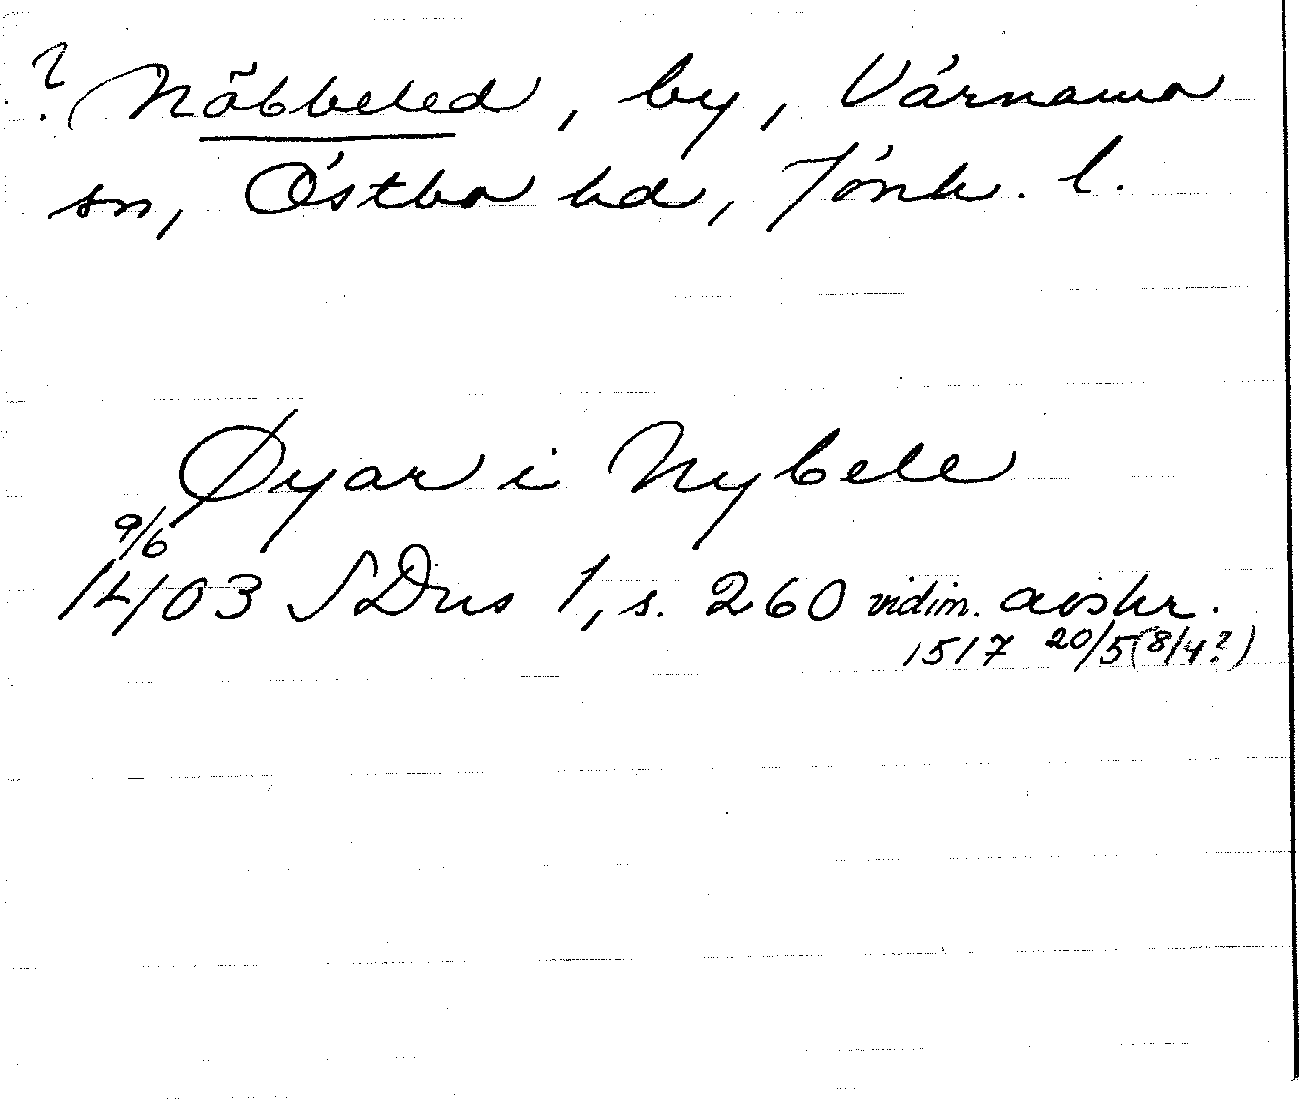 ? Nöbbeled, by, Värnamo
sn, Östbo hd, Jönk. l.
Øyar i Nybele
9/6
1403 SDns 1, s. 260 vidim. avskr.
1517 20/5 (8/4?)